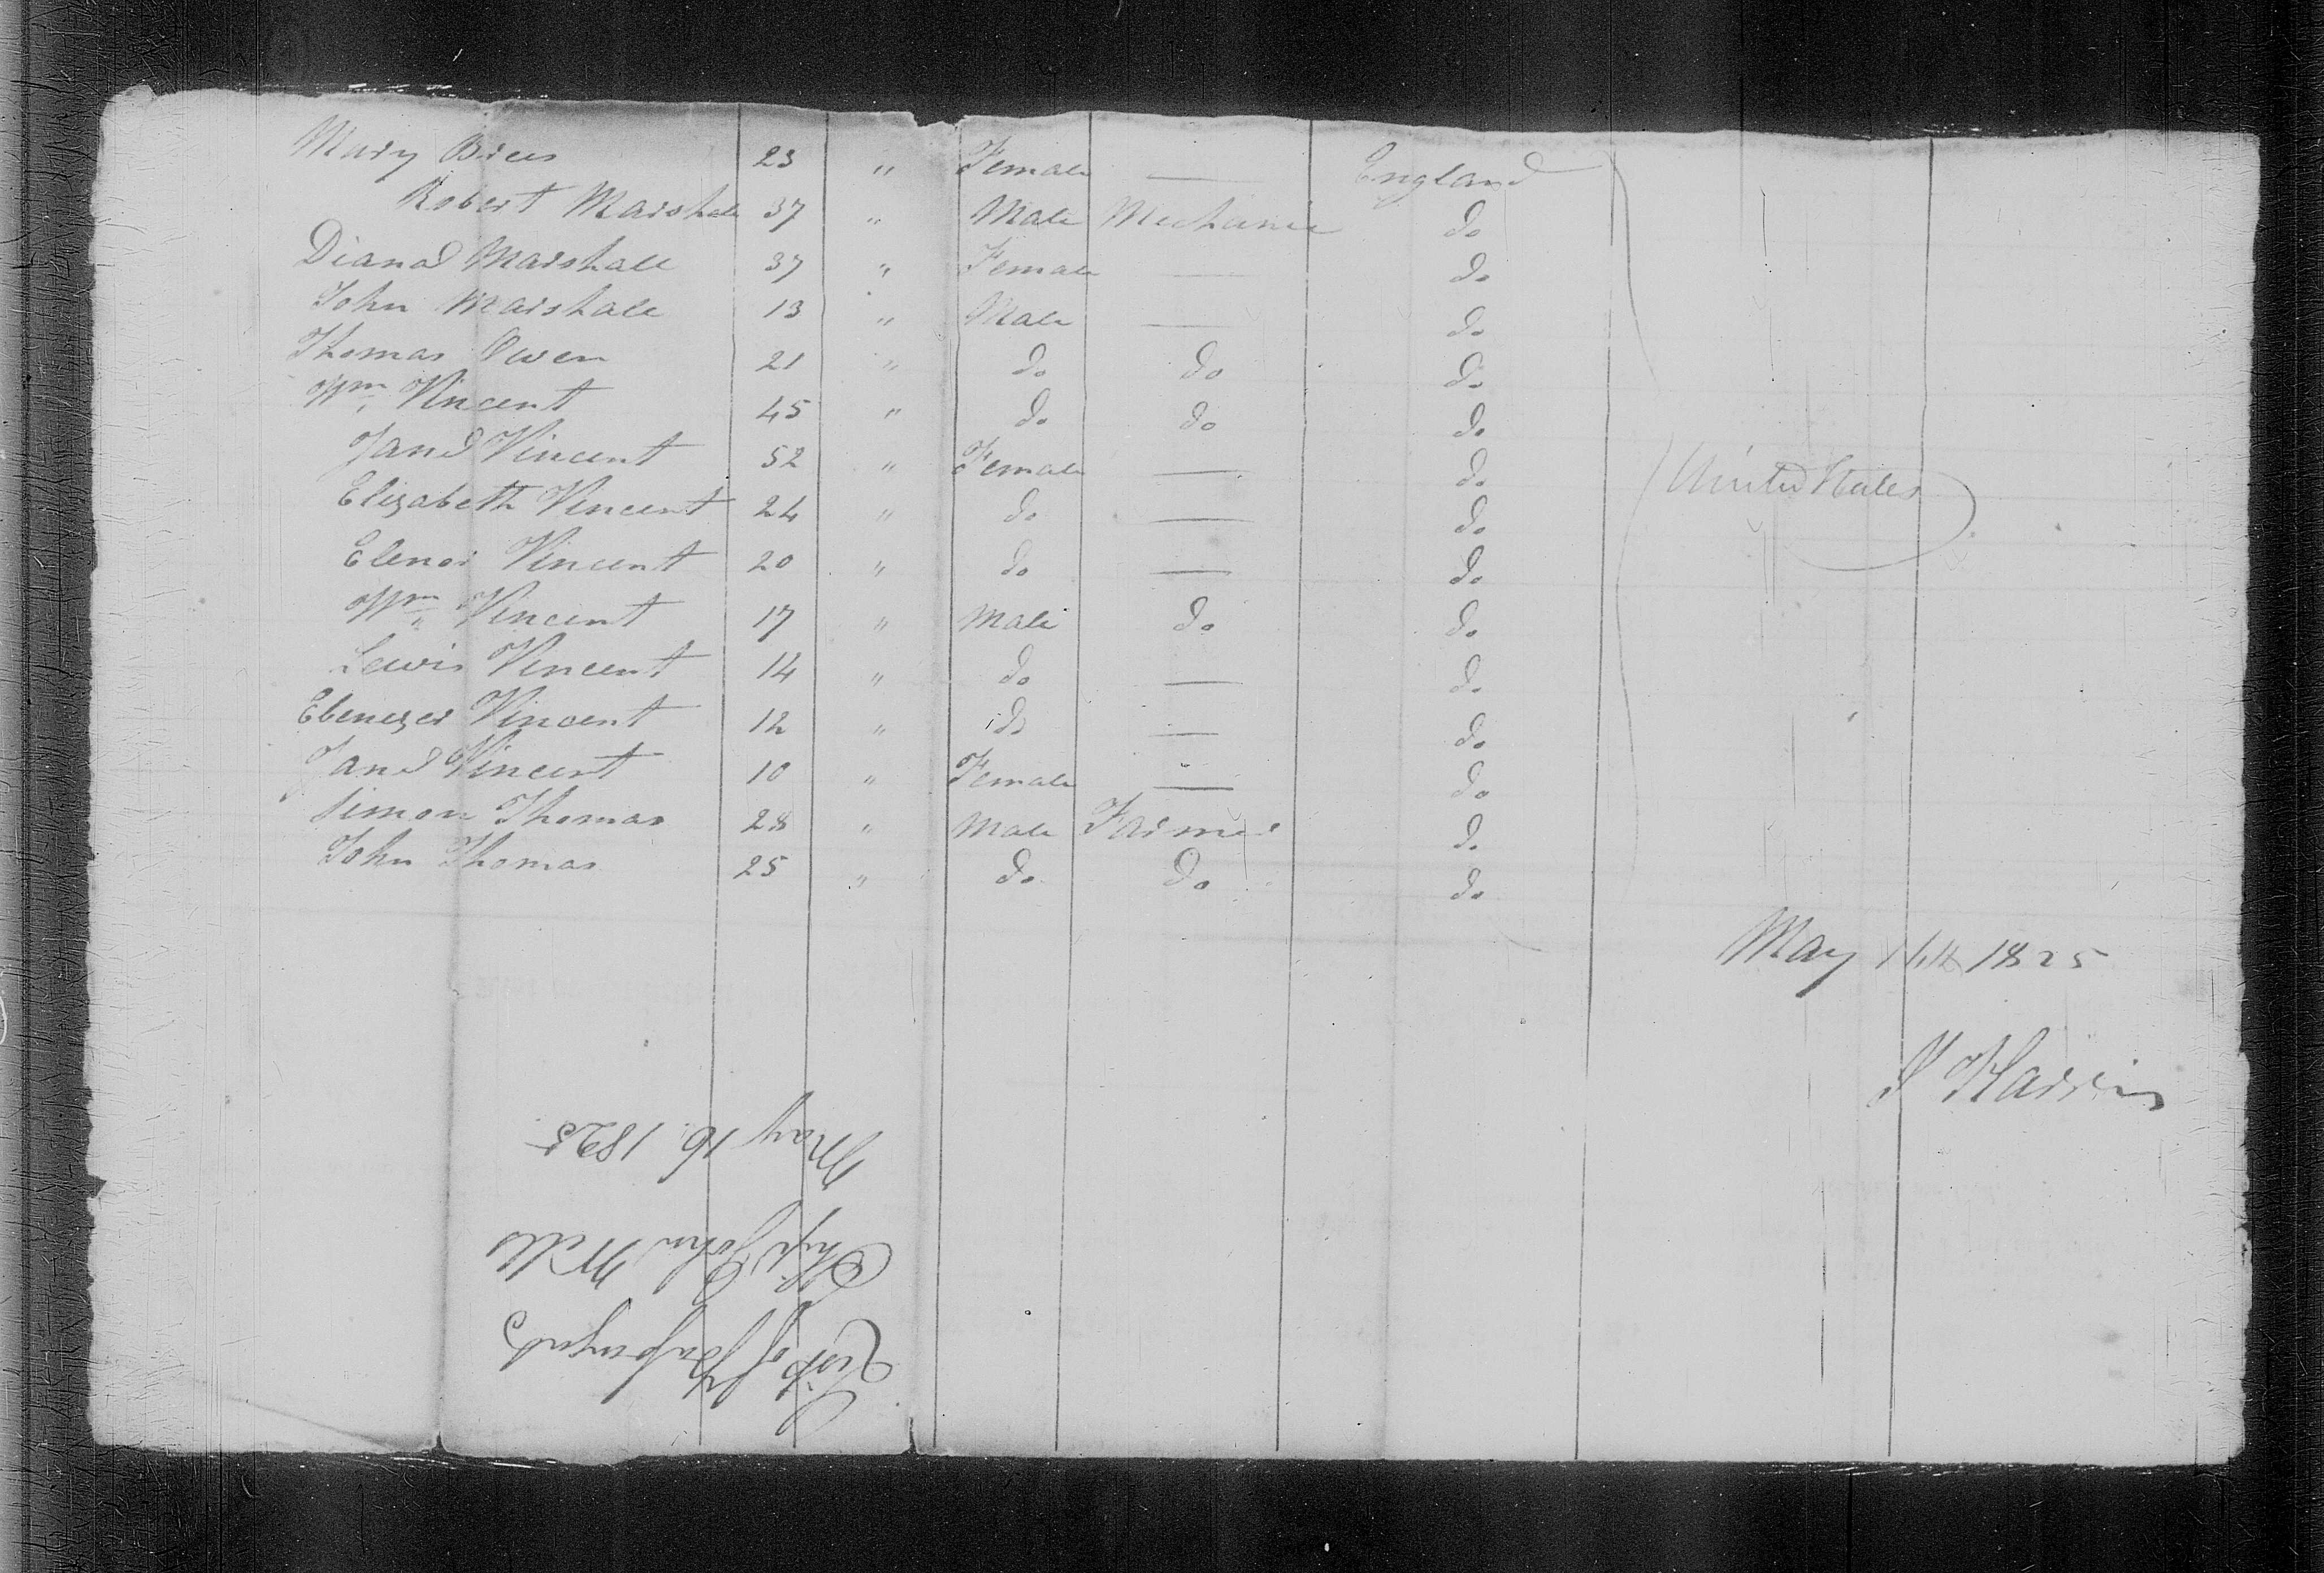 Mary Brees 23 " Female — England
Robert Marshale 37 " Male Mechanic do
Diana Marshall 37 " Female — do
John Marshall 13 " Male — do
Thomas Owen 21 " do do do
Wm Vincent 45 " do do do
Jane Vincent 52 " Female — do
Elizabeth Vincent 24 " do — do
United States
Elenor Vincent 20 " do — do
Wm Vincent 17 " Male do do
Lewis Vincent 14 " do — do
Ebenezer Vincent 12 " do — do
Jane Vincent 10 " Female — do
Simon Thomas 28 " Male Farmer do
John Thomas 25 " do do do
May 1825
J Harris
List of Passengers
Ship John Wells
May 16 1825